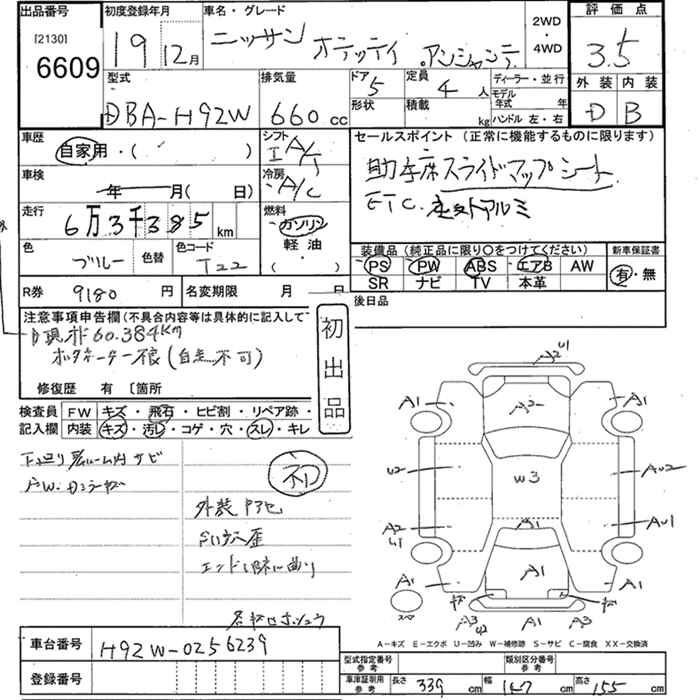 出品番号 初度登録年月 車名・グレード 2WD・4WD 評価点
[2130]
6609
19 12月 ニッサン オッティ アンシャンテ 3.5
型式 排気量 ドア 定員 ディーラー・並行 外装 内装
DBA-H92W 660 cc 5 4人 モデル年式 年 D B
形状 積載 kg ハンドル 左・右
車歴 シフト セールスポイント (正常に機能するものに限ります)
自家用・( ) I A/T 助手席スライドマップシート
車検 冷房
年 月( 日) A/C ETC.
走行 燃料
6万3千385 km ガソリン
色 色替 色コード 軽油 装備品 (純正品に限り○をつけてください) 新車保証書
ブルー T22 ( ) PS PW ABS エアB AW 有・無
SR ナビ TV 本革
R券 9180 円 名変期限 月 日 後日品
注意事項申告欄 (不具合内容等は具体的に記入して 初出品
60.384km
(自走不可)
修復歴 有 〔箇所
検査員 FW キズ・飛石・ヒビ割・リペア跡・
記入欄 内装 キズ・汚レ・コゲ・穴・スレ・キレ
A2 U1
A1 A2 A1
U2 W3 AU2
A2 U1 A1 AU1
A1 A1 A1
A3 U2 A1 A3
サビ
外装
A-キズ E-エクボ U-凹み W-補修跡 S-サビ C-腐食 XX-交換済
車台番号 H92W-0256239
登録番号
型式指定番号 参考 類別区分番号 参考
車庫証明用 参考 長さ 339 cm 幅 147 cm 高さ 155 cm